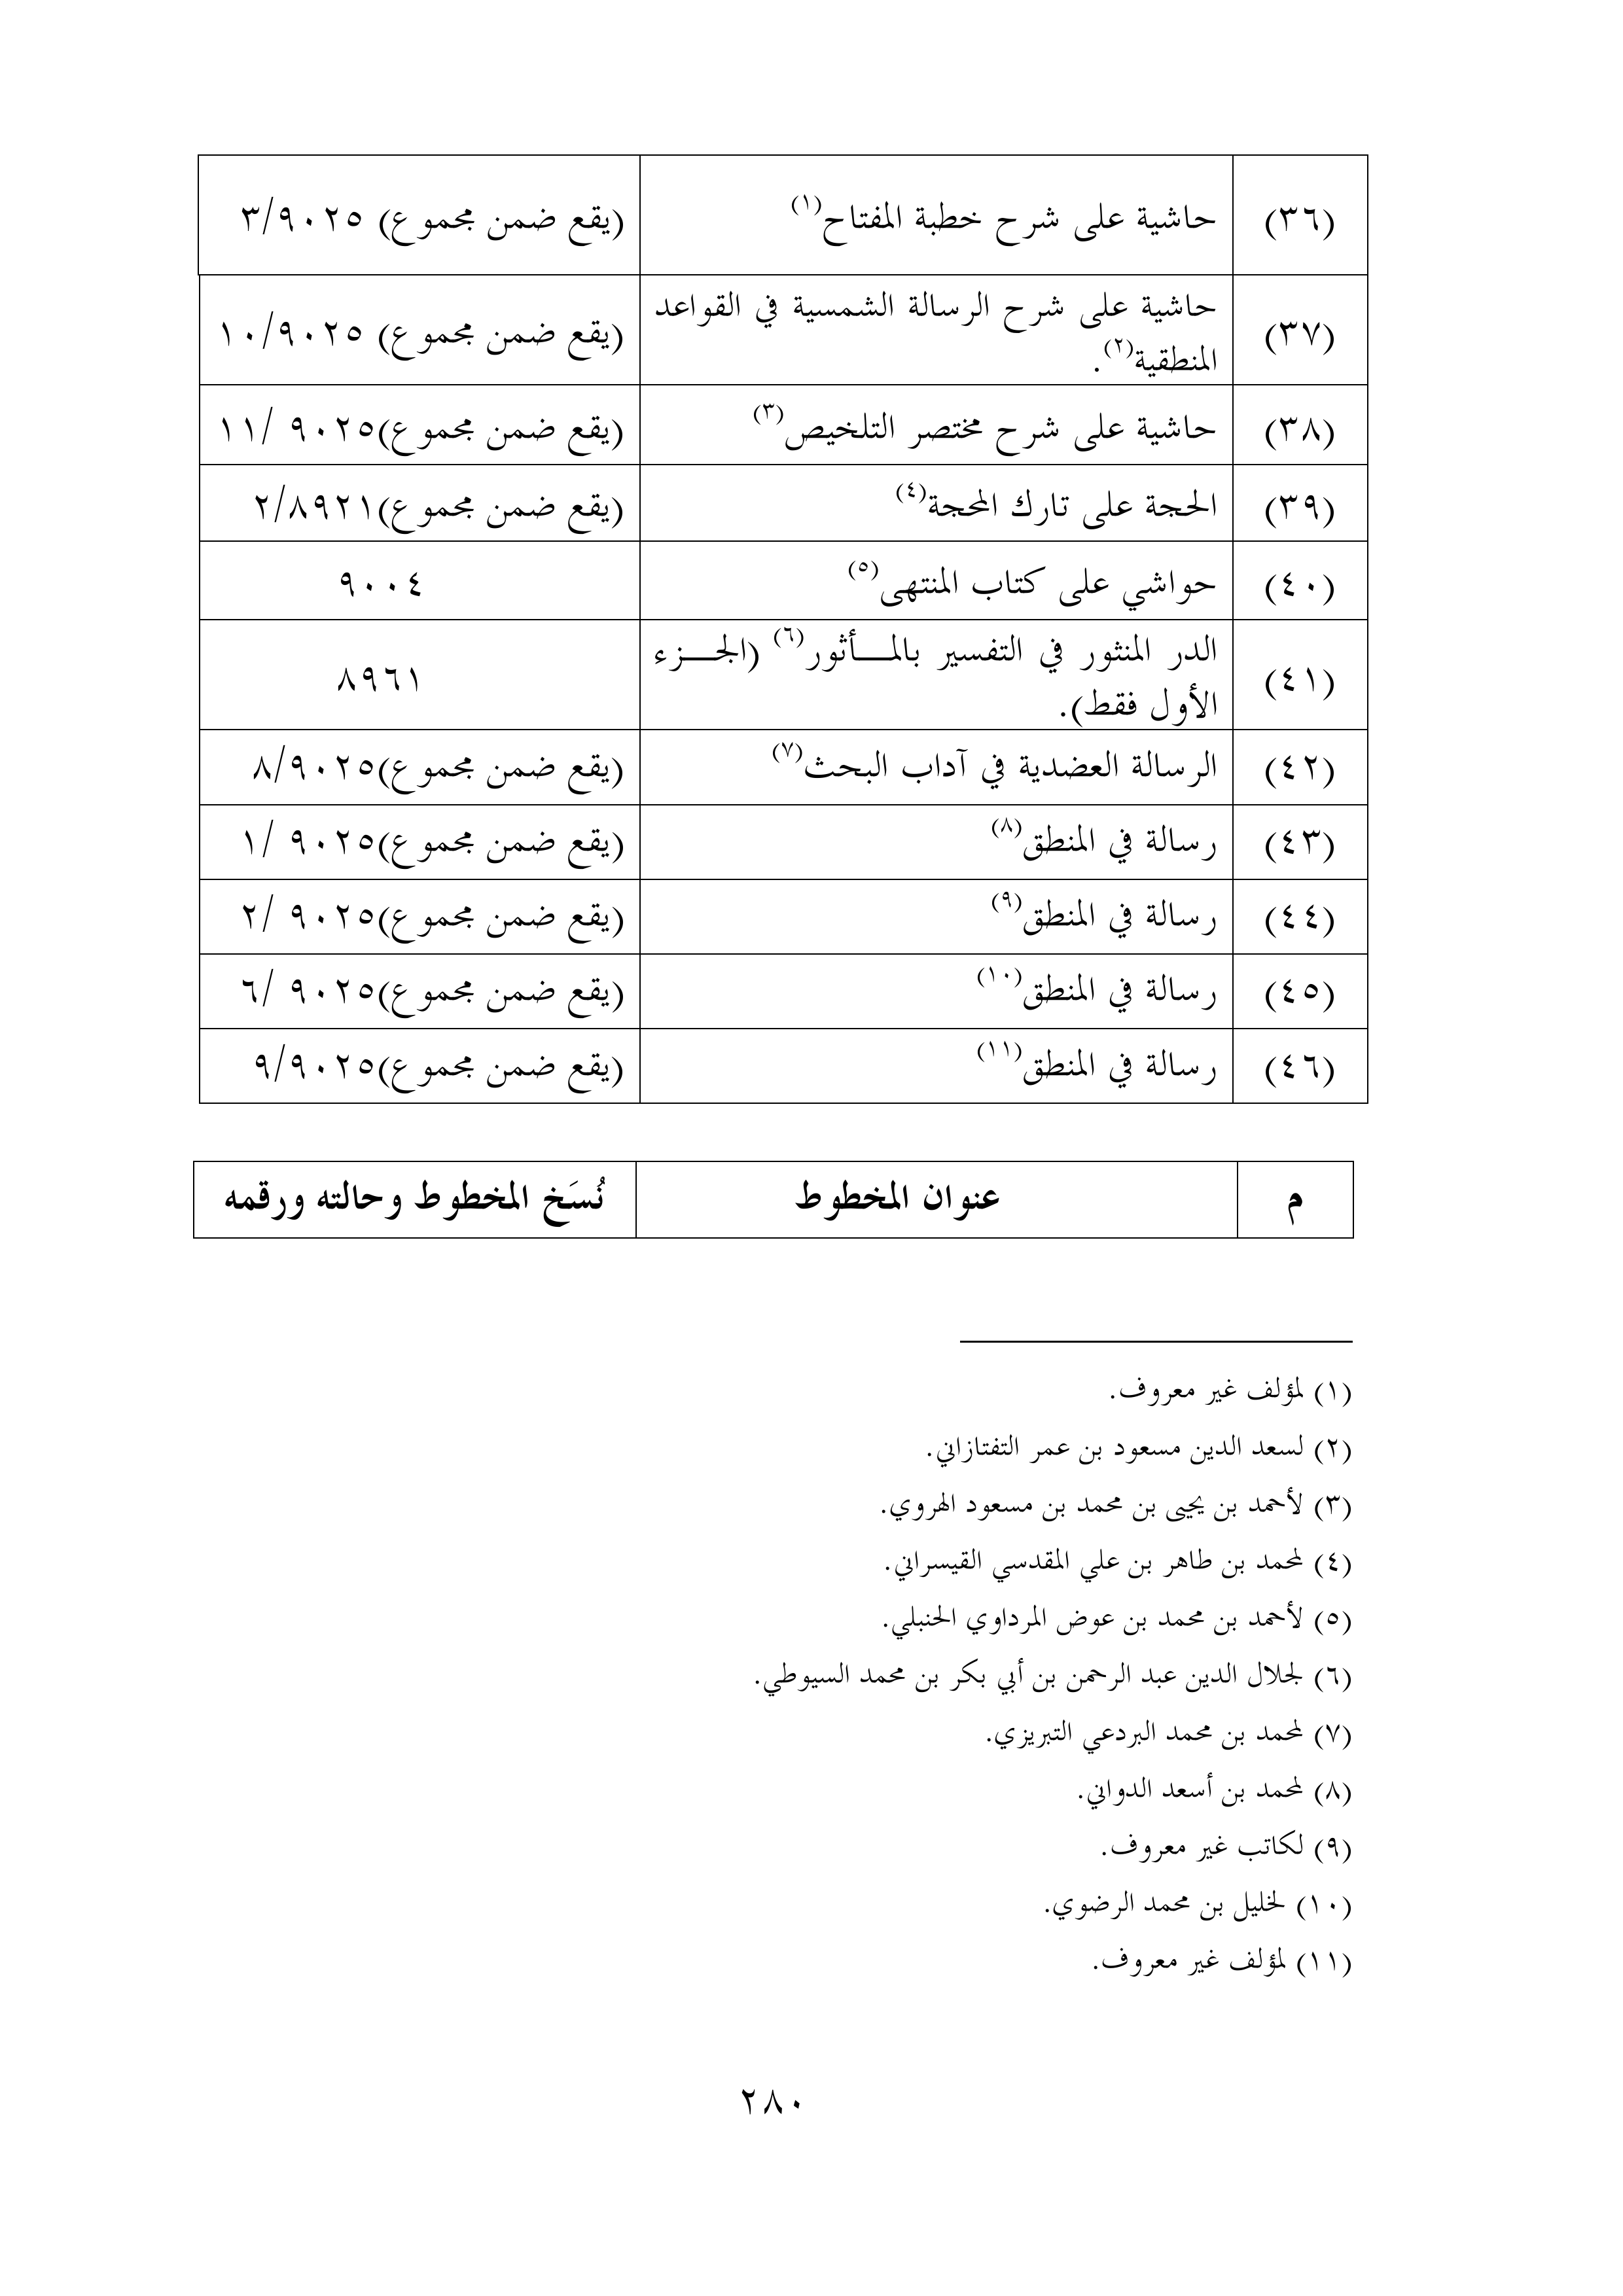 (٣٦) حاشية على شرح خطبة المفتاح(١) (يقع ضمن مجموع) ٣/٩٠٢٥
(٣٧) حاشية على شرح الرسالة الشمسية في القواعد
المنطقية(٢). (يقع ضمن مجموع) ١٠/٩٠٢٥
(٣٨) حاشية على شرح مختصر التلخيص(٣) (يقع ضمن مجموع)٩٠٢٥ /١١
(٣٩) الحجة على تارك المحجة(٤) (يقع ضمن مجموع)٢/٨٩٢١
(٤٠) حواشي على كتاب المنتهى(٥) ٩٠٠٤
(٤١) الدر المنثور في التفسير بالمـــأثور(٦) (الجـــزء
الأول فقط). ٨٩٦١
(٤٢) الرسالة العضدية في آداب البحث(٧) (يقع ضمن مجموع)٨/٩٠٢٥
(٤٣) رسالة في المنطق(٨) (يقع ضمن مجموع)٩٠٢٥ /١
(٤٤) رسالة في المنطق(٩) (يقع ضمن مجموع)٩٠٢٥ /٢
(٤٥) رسالة في المنطق(١٠) (يقع ضمن مجموع)٩٠٢٥ /٦
(٤٦) رسالة في المنطق(١١) (يقع ضمن مجموع)٩/٩٠٢٥
م عنوان المخطوط نُسَخ المخطوط وحالته ورقمه
(١) لمؤلف غير معروف.
(٢) لسعد الدين مسعود بن عمر التفتازاني.
(٣) لأحمد بن يحيى بن محمد بن مسعود الهروي.
(٤) لمحمد بن طاهر بن علي المقدسي القيسراني.
(٥) لأحمد بن محمد بن عوض المرداوي الحنبلي.
(٦) لجلال الدين عبد الرحمن بن أبي بكر بن محمد السيوطي.
(٧) لمحمد بن محمد البردعي التبريزي.
(٨) لمحمد بن أسعد الدواني.
(٩) لكاتب غير معروف.
(١٠) لخليل بن محمد الرضوي.
(١١) لمؤلف غير معروف.
٢٨٠